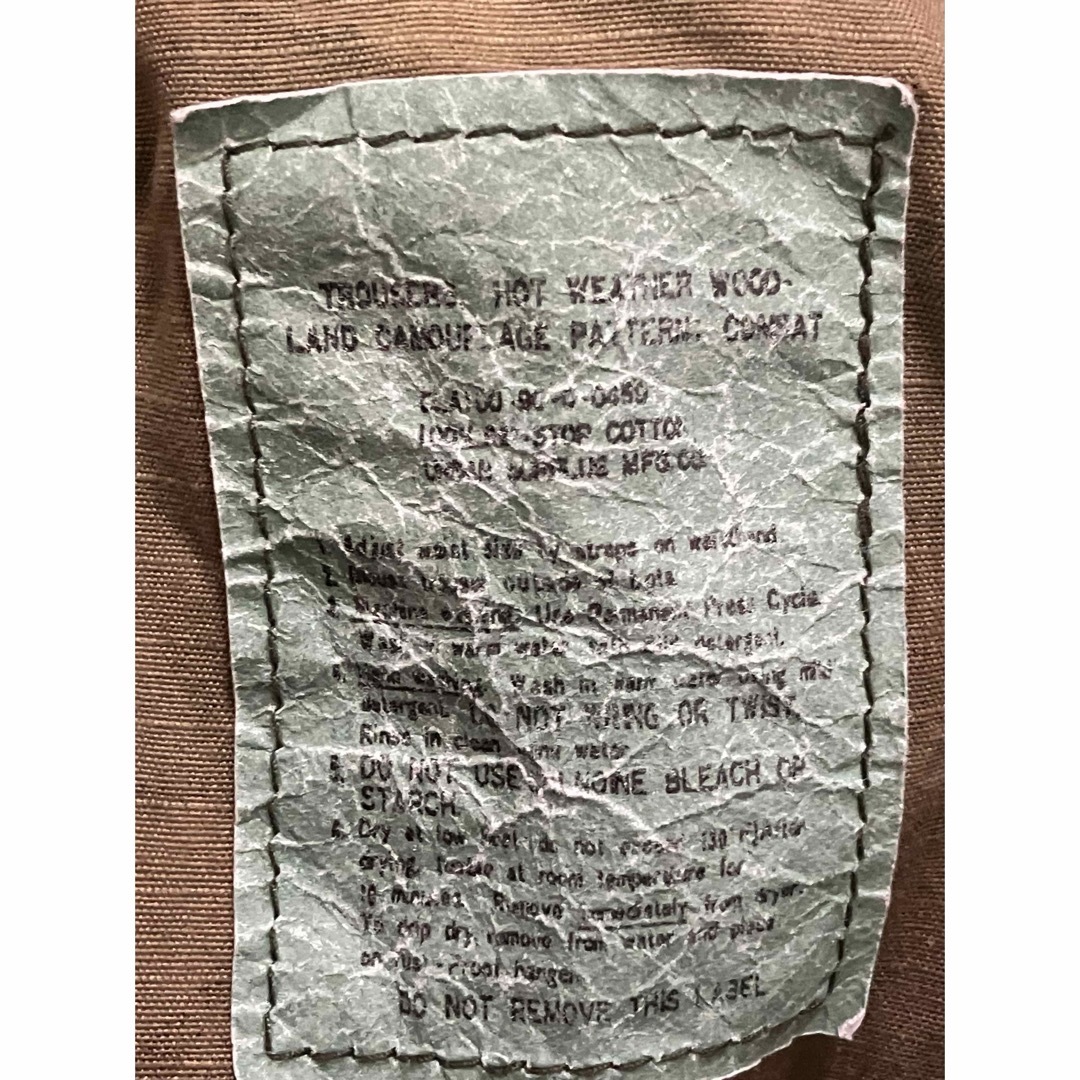 TROUSERS, HOT WEATHER WOOD-
LAND CAMOUFLAGE PATTERN: COMBAT
100% RIP-STOP COTTON
URBAN SURPLUS MFG.CO
1. Adjust waist size by straps on waistband.
2. trouser outside of boots
3. Machine Use Permanent Press Cycle.
Wash in warm water with mild detergent.
4. Hand washing: Wash in warm water using mild
detergent. DO NOT WRING OR TWIST.
Rinse in clean warm water
5. DO NOT USE BLEACH OR
STARCH
6. Dry at low do not exceed 130°F). After
drying, at room temperature for
10 minutes. Remove immediately from dryer.
To drip dry, remove from water and place
on rust-proof hanger.
DO NOT REMOVE THIS LABEL